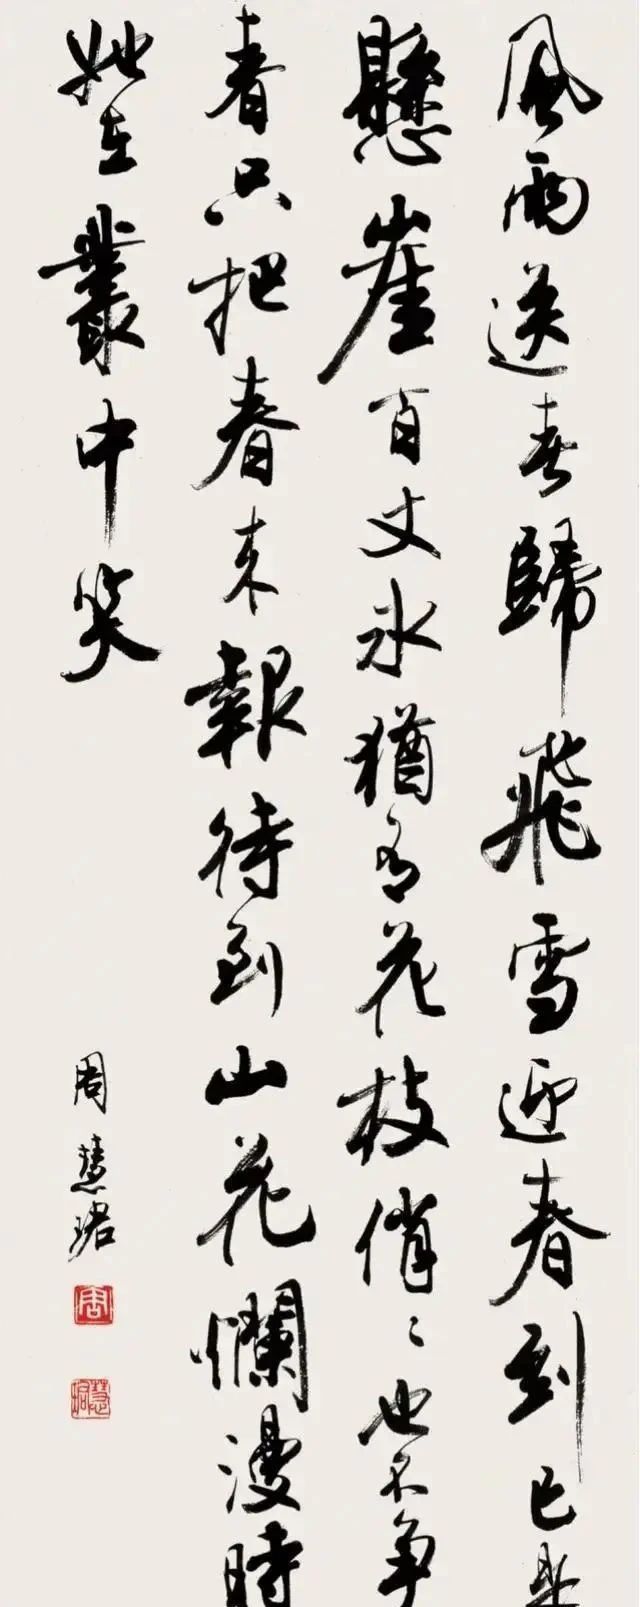 風雨送春歸飛雪迎春到已是
懸崖百丈冰猶有花枝俏〻也不争
春只把春来報待到山花爛漫時
她在叢中笑
周慧珺
周
慧珺